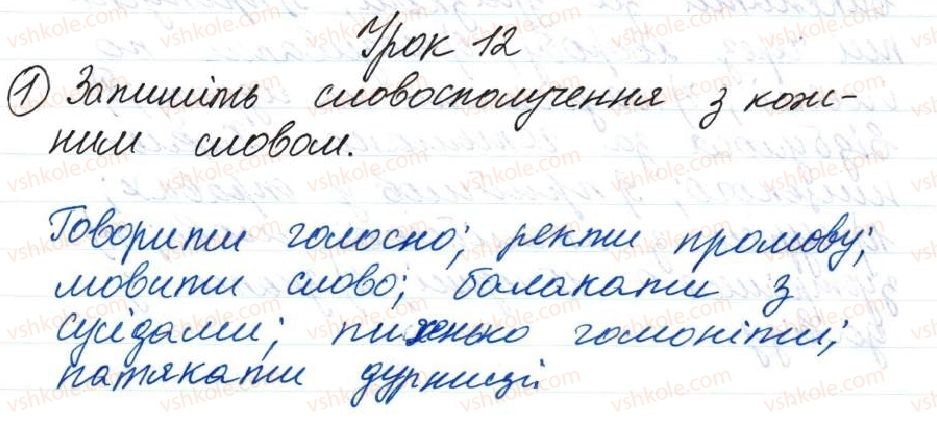 Урок 12
① Запишіть словосполучення з кож-
ним словом.
Говорити голосно; ректи промову;
мовити слово; балакати з
сусідами; тихенько гомоніти;
патякати дурниці